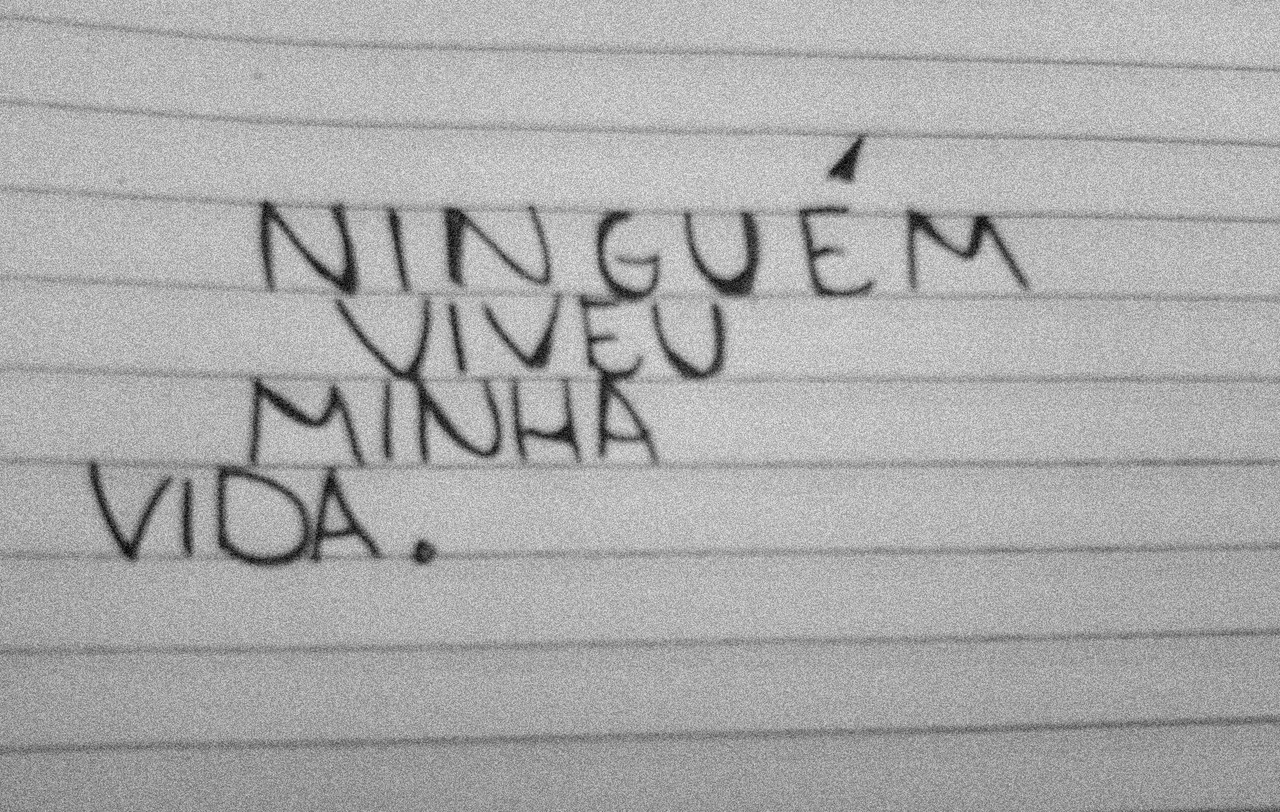 NINGUÉM
VIVEU
MINHA
VIDA.